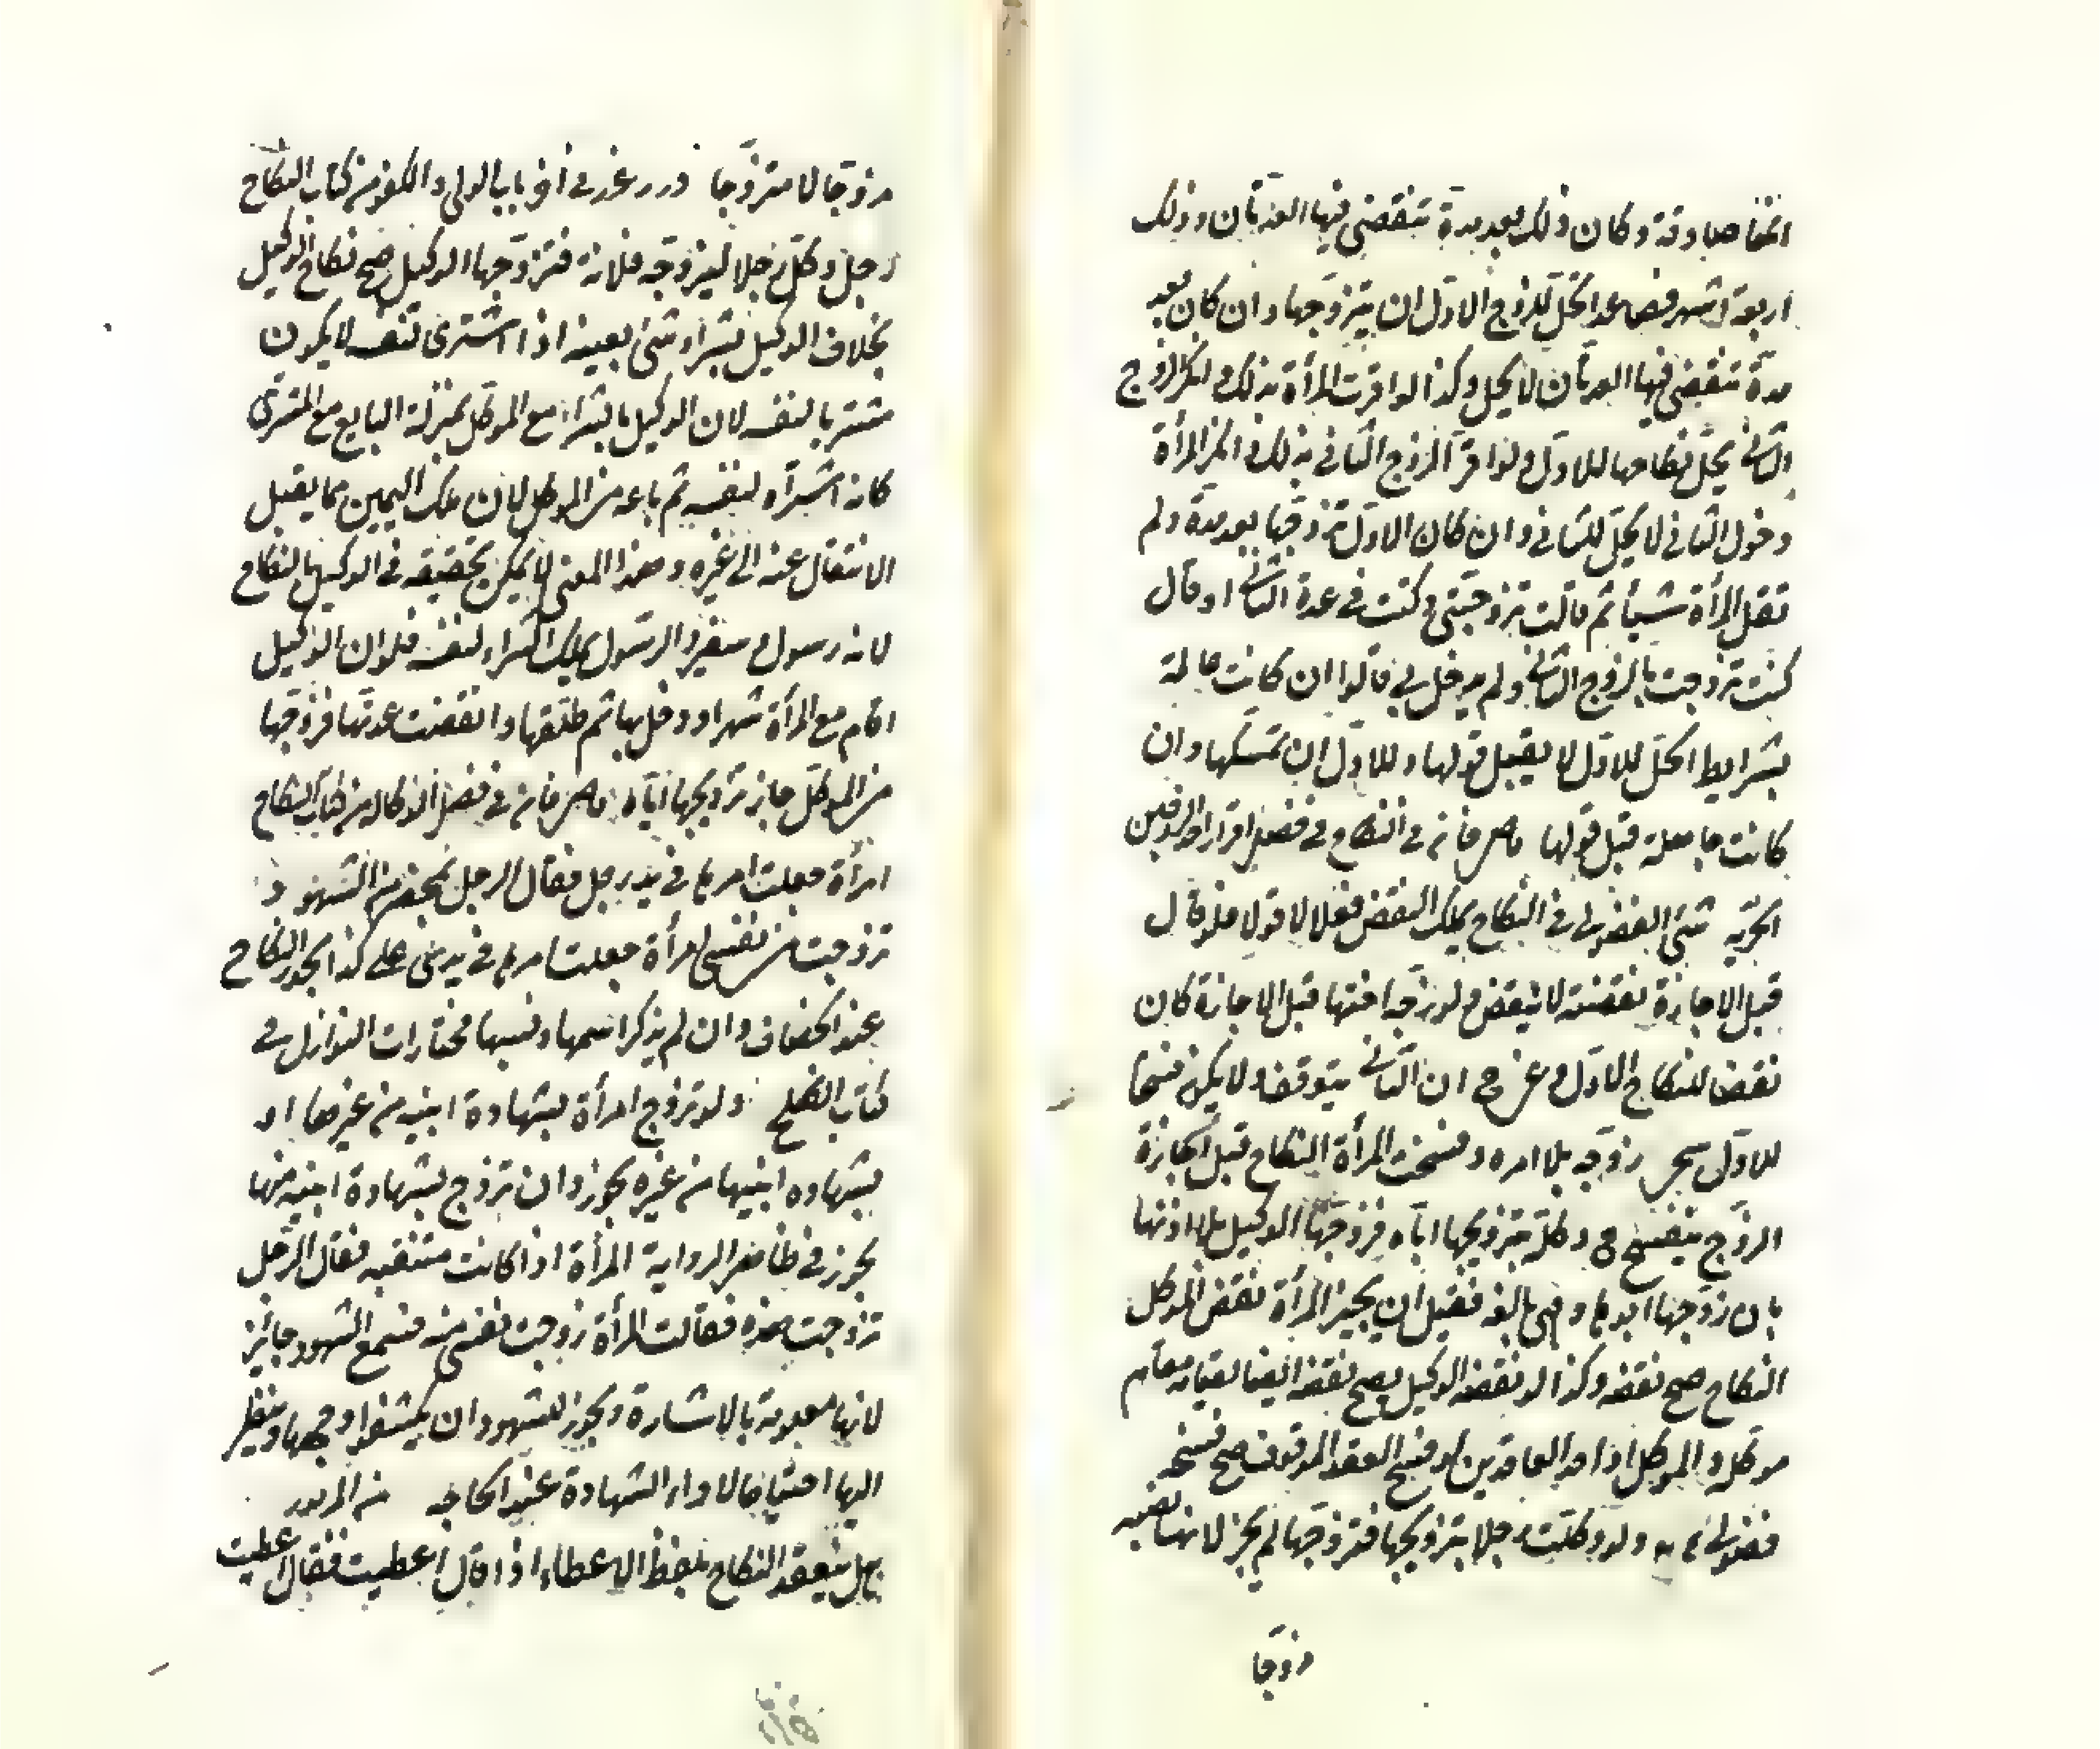 انها صادقة وكان ذلك بعد مدة تنقضى فيها العدتان وذلك
اربعة اشهر فصاعدا تحل للزوج الاول ان يتزوجها وان كان بعد
مدة تنقضى فيها العدتان لا يحل وكذا لو اقرت المرأة بذلك وانكر الزوج
الثانى يحل نكاحها للاول ولو اقر الزوج الثانى بذلك وانكر المرأة
دخول الثانى لا يحل للثانى وان كان الاول تزوجها بعد مدة ولم
تقل المرأة شيأ ثم قالت تزوجتنى وكنت فى عدة الثانى او قال
كنت تزوجت بالزوج الثانى ولم يدخل بى قالوا ان كانت عالمة
بشرايط الحل للاول لا يقبل قولها وللاول ان يمسكها وان
كانت جاهلة قبل قولها قاضيخان فى النكاح فى فصل اقرار احد الزوجين
الحرية شئ الفضولى فى النكاح يملك النقض فعلا لا قولا فلو قال
قبل الاجازة نقضته لا ينقض ولو زوجه اختها قبل الاجازة كان
نقضا للنكاح الاول وعن ح ان الثانى يتوقف ولا يكون فسخا
للاول زوجه بلا امره وفسخت المرأة النكاح قبل اجازة
الزوج ينفسخ وكله بتزويجها اياه فزوجها الوكيل بلا اذنها
بان زوجها ابوها وهى بالغة فقبل ان يجيز المرأة نقض الموكل
النكاح صح نقضه وكذا لو نقضه الوكيل يصح نقضه ايضا لقيامه مقام
موكله والموكل اذا احد العاقدين لو فسخ العقد الموقوف صح فسخه
ولو وكلت رجلا بتزويجها فتزوجها لم يجز لانها نصبته
مزوجا
مزوجا لا متزوجا درر غرر فى اخر باب الولى والكفو من كتاب النكاح
رجل وكل رجلا ليزوجه فلانة فتزوجها الوكيل صح نكاح الوكيل
بخلاف الوكيل بشراء شئ بعينه اذا اشترى لنفسه لا يكون
مشتريا لنفسه لان الوكيل بالشراء مع الموكل بمنزلة البايع مع المشترى
كانه اشتراه لنفسه ثم باعه من الموكل لان ملك اليمين مما يقبل
الانتقال عنه الى غيره وهذا المعنى لا يمكن تحقيقه فى الوكيل بالنكاح
لانه رسول وسفير والرسول يملك الشراء لنفسه فلو ان الوكيل
اقام مع المرأة شهرا ودخل بها ثم طلقها وانقضت عدتها فزوجها
من الموكل جاز تزويجها اياه قاضيخان فى فصل الوكالة من كتاب النكاح
امرأة جعلت امرها فى يد رجل فقال الرجل بمحضر من الشهود
تزوجت من نفسى امرأة جعلت امرها فى يدى على كذا يجوز النكاح
عند الخصاف وان لم يذكر اسمها ونسبها مختارات النوازل فى
كتاب الصلح ولو تزوج امرأة بشهادة ابنيه من غيرها او
بشهادة ابنيها من غيره يجوز وان تزوج بشهادة ابنيه منها
يجوز فى ظاهر الرواية المرأة اذا كانت متنقبه فقال الرجل
تزوجت هذه فقالت المرأة زوجت نفسى منه فسمع الشهود جائز
لانها معلومة بالاشارة ويجوز للشهود ان يكشفوا وجهها وينظر
اليها احتياطا لاداء الشهادة عند الحاجه من المزبور
هل ينعقد النكاح بلفظ الاعطاء اذا قال اعطيت فقال اعطيت